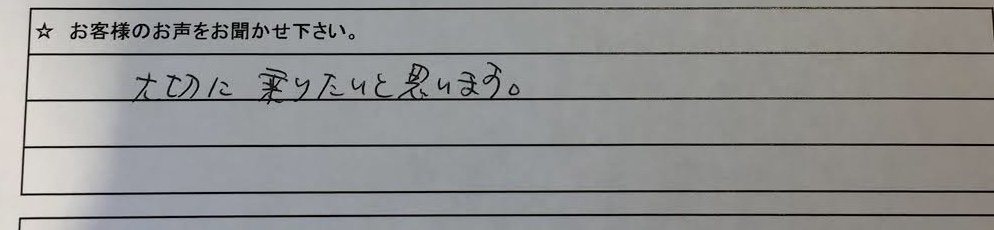 ☆ お客様のお声をお聞かせ下さい。
大切に乗りたいと思います。